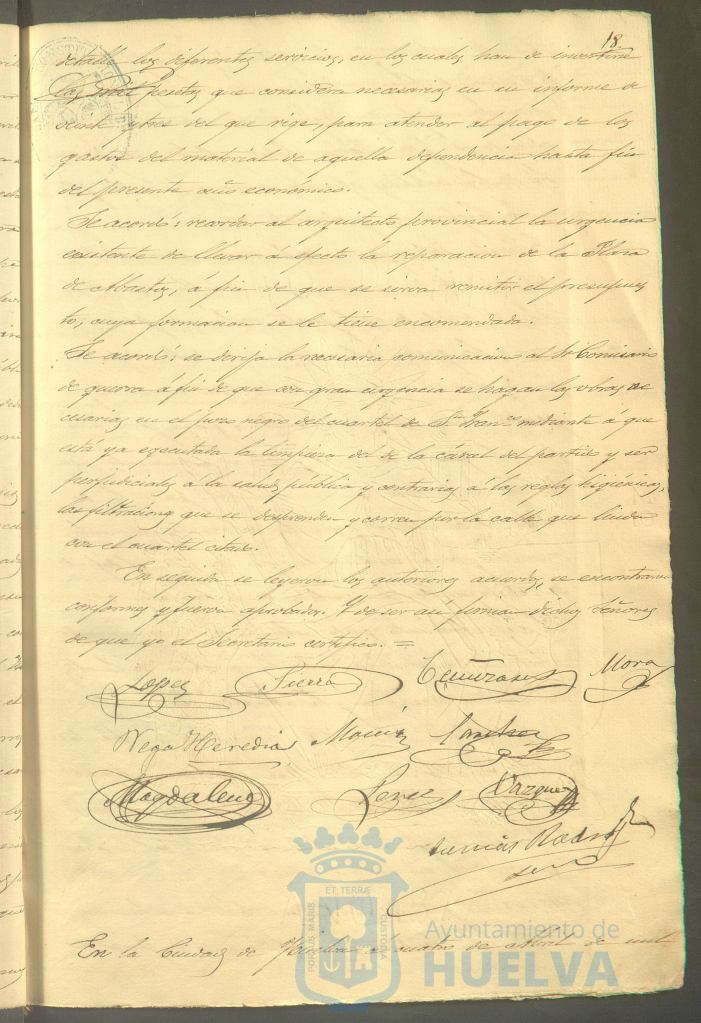 18
detalle los diferentes servicios, en los cuales han de invertirse
las mil pesetas que considera necesarias en su informe de
veinte y tres del que rige, para atender al pago de los
gastos del material de aquella dependencia hasta fin
del presente año económico.
Se acordó: recordar al arquitecto provincial la urgencia
existente de llevar á efecto la reparacion de la Plaza
de Abastos, á fin de que se sirva remitir el presupues
to, cuya formacion se le tiene encomendada.
Se acordó: se dirija la necesaria comunicacion al Sr Comisario
de guerra á fin de que con gran urgencia se hagan las obras ne
cesarias en el pozo negro del cuartel de Sn Franco mediante á que
está ya executada la limpieza del de la cárcel del partido y ser
perjudiciales a la salud publica y contrarias á las reglas higienicas,
las filtraciones que se desprenden y corren por la calle que linda
con el cuartel citado.
En seguida se leyeron los anteriores acuerdos, se encontraron
conformes y fueron aprobados. Y de ser asi firman dichos Señores
de que yo el Secretario certifico. =
Lopez Sierra Mora
Vega Heredia Macias Sanchez
Magdaleno Perez Vazquez
En la Ciudad de Huelva á cuatro de Abril de mil
PORTUS MARIS ET TERRÆ CUSTODIA
Ayuntamiento de
HUELVA